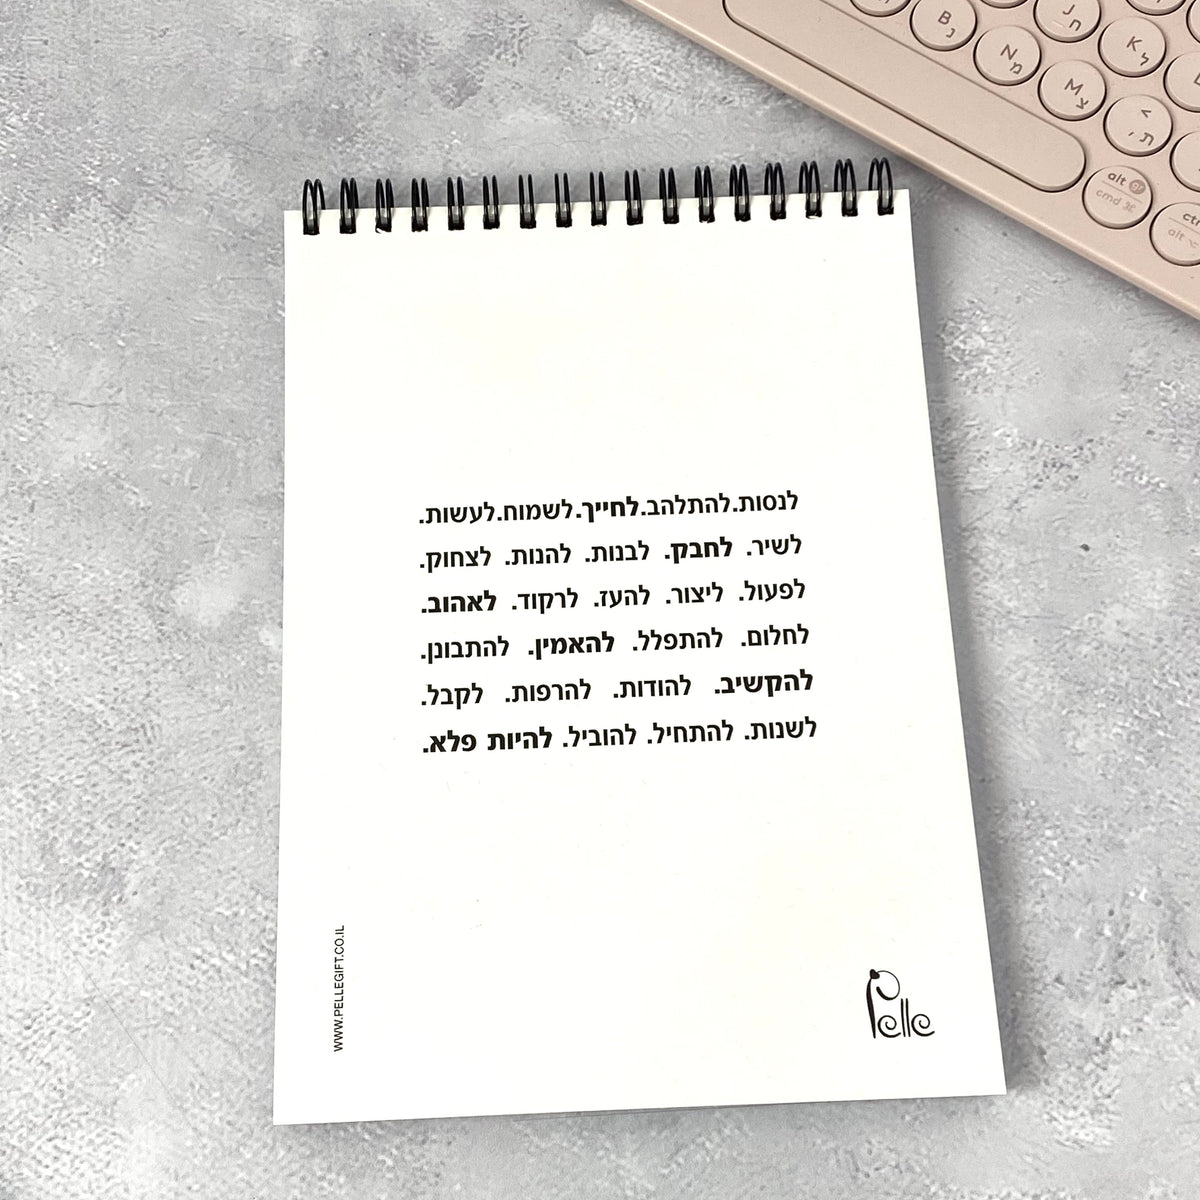 לנסות.להתלהב.לחייך.לשמוח.לעשות.
לשיר. לחבק. לבנות. להנות. לצחוק.
לפעול. ליצור. להעז. לרקוד. לאהוב.
לחלום. להתפלל. להאמין. להתבונן.
להקשיב. להודות. להרפות. לקבל.
לשנות. להתחיל. להוביל. להיות פלא.
WWW.PELLEGIFT.CO.IL
Pelle
B נ
N מ
M צ
J ח
K ל
< ת ,
alt gr
cmd ⌘
ctr
alt ⌥